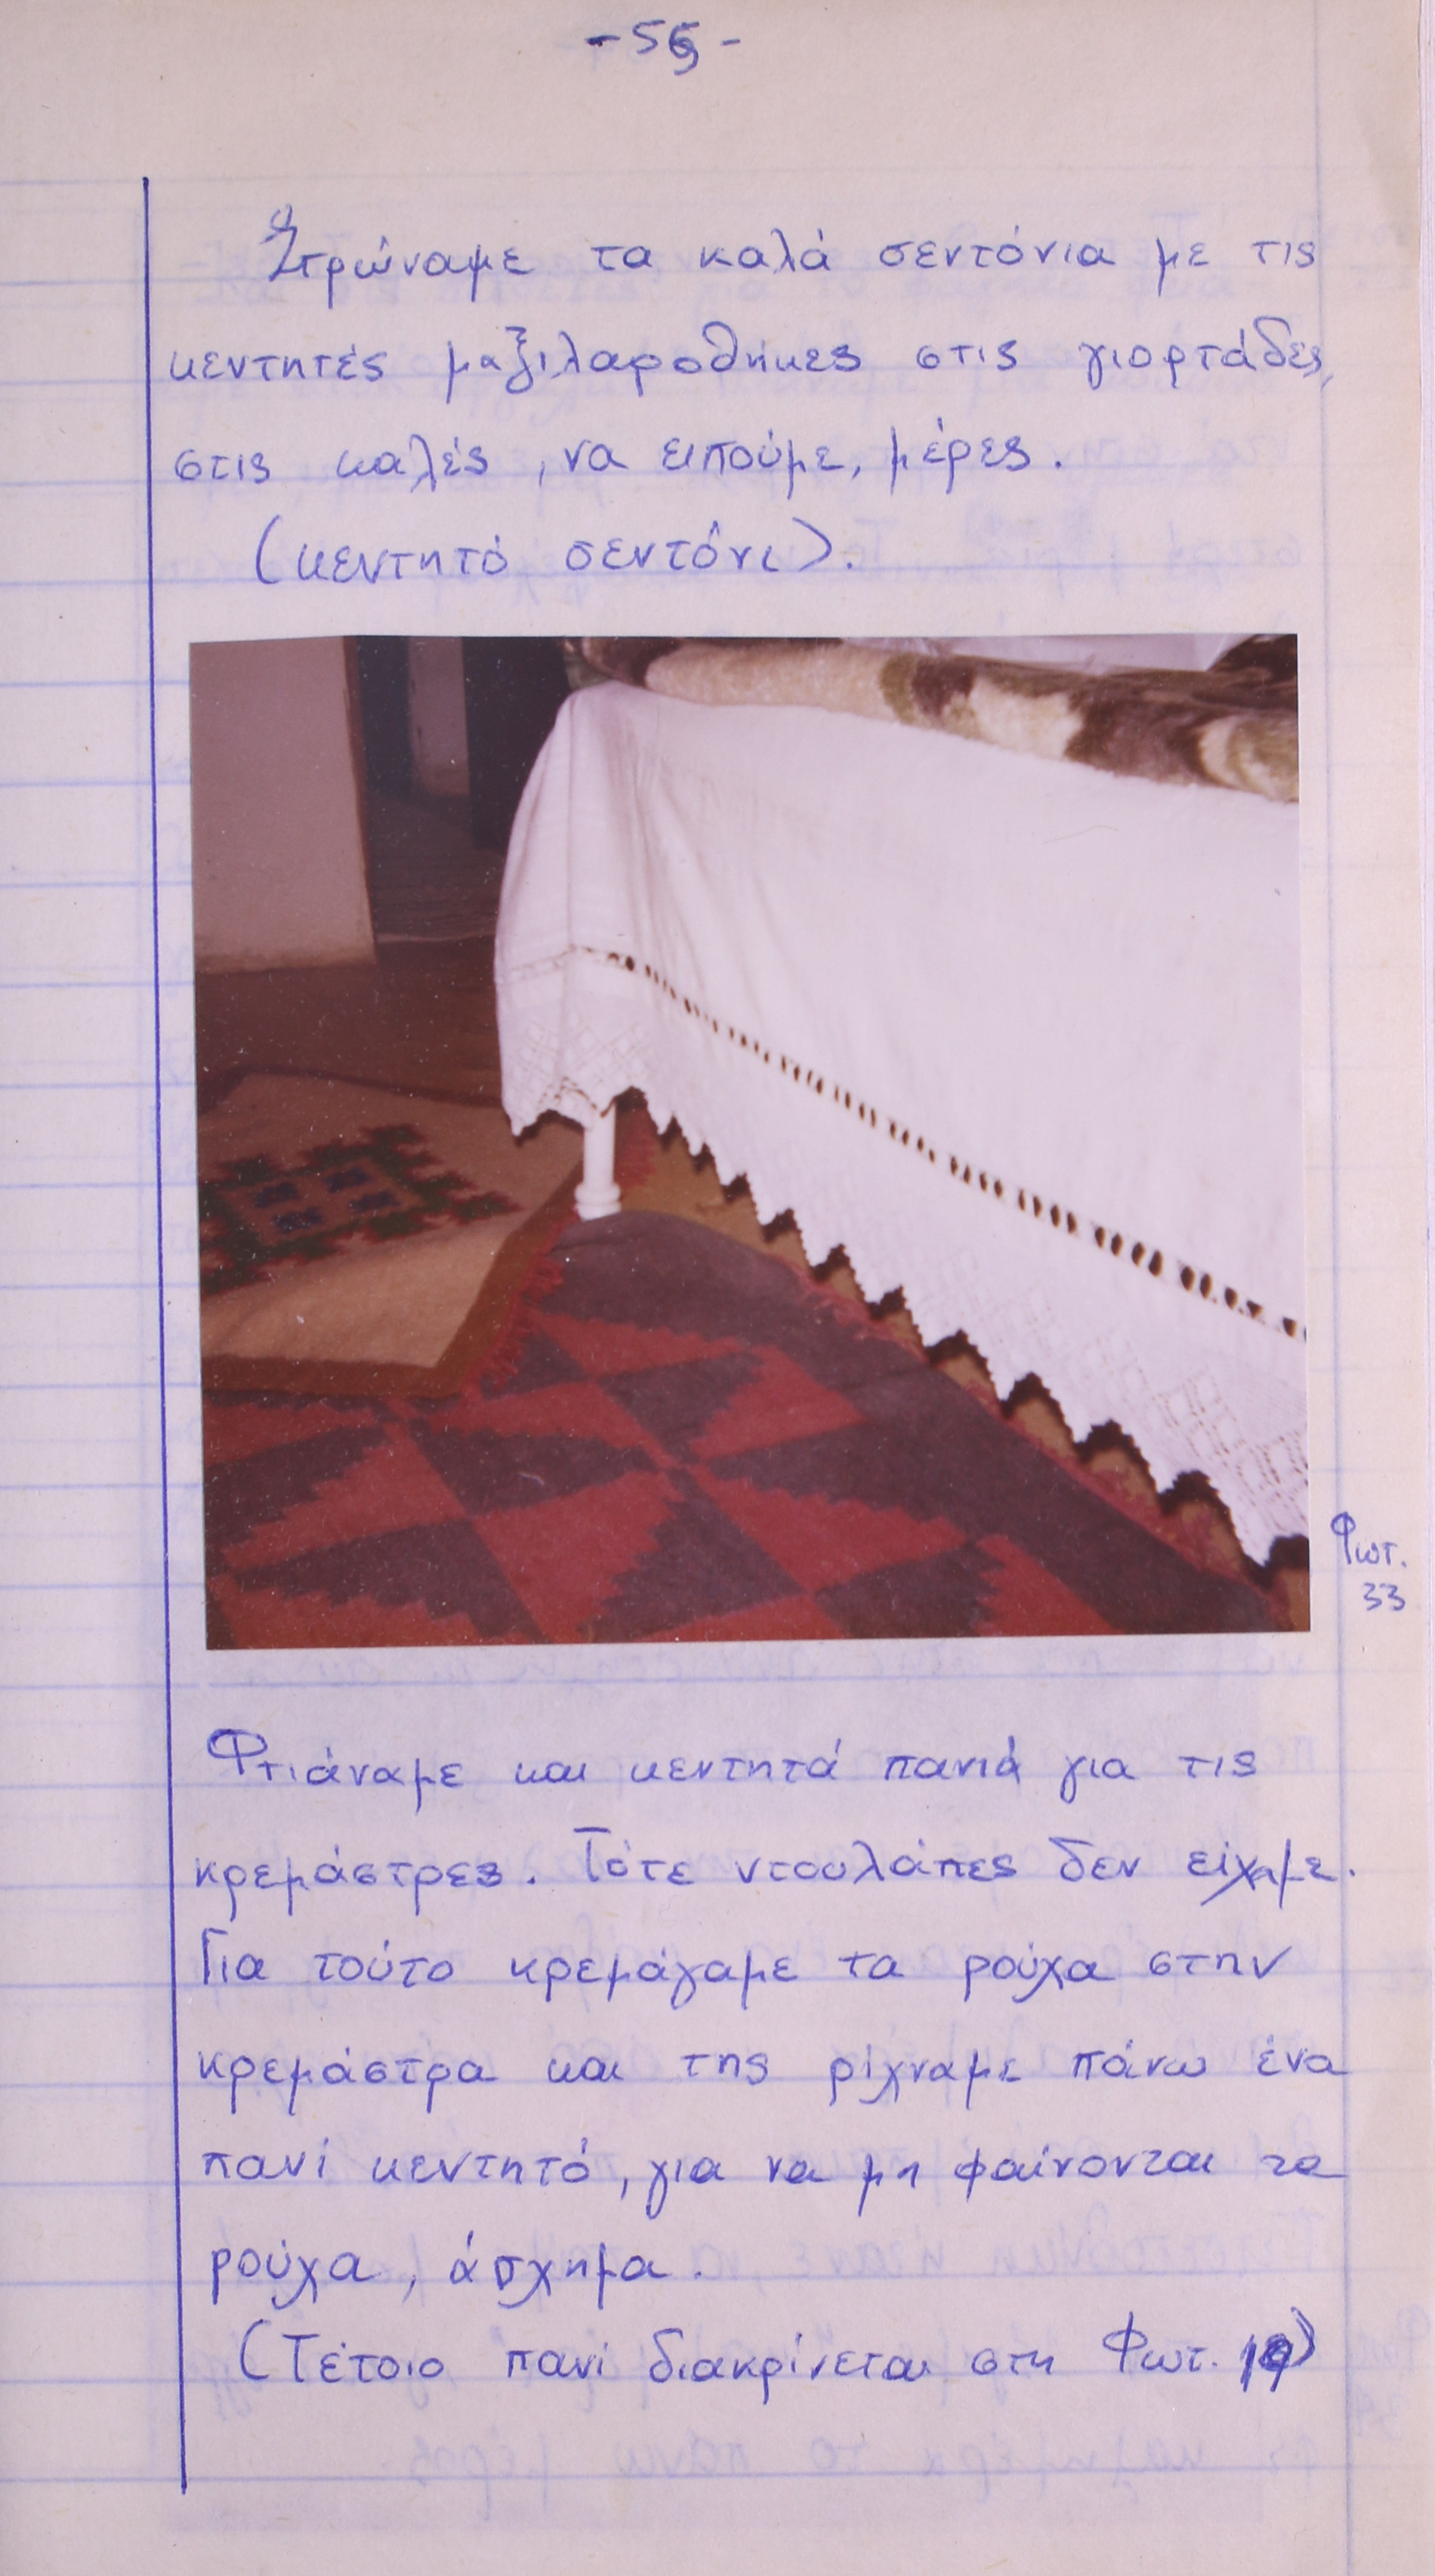 Στρώναμε τα καλά σεντόνια με τις
κεντητές μαξιλαροθήκες στις γιορτάδες,
στις καλές, να ειπούμε, μέρες.
(κεντητό σεντόνι).
Φωτ.
33
Φτιάναμε και κεντητά πανιά για τις
κρεμάστρες. Τότε ντουλάπες δεν είχαμε.
Για τούτο κρεμάγαμε τα ρούχα στην
κρεμάστρα και της ρίχναμε πάνω ένα
πανί κεντητό, για να μη φαίνονται τα
ρούχα, άσχημα.
(Τέτοιο πανί διακρίνεται στη Φωτ. 19)